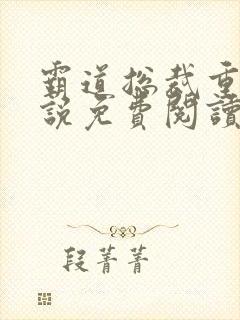 霸道总裁重
說免費閱讀
段菁菁